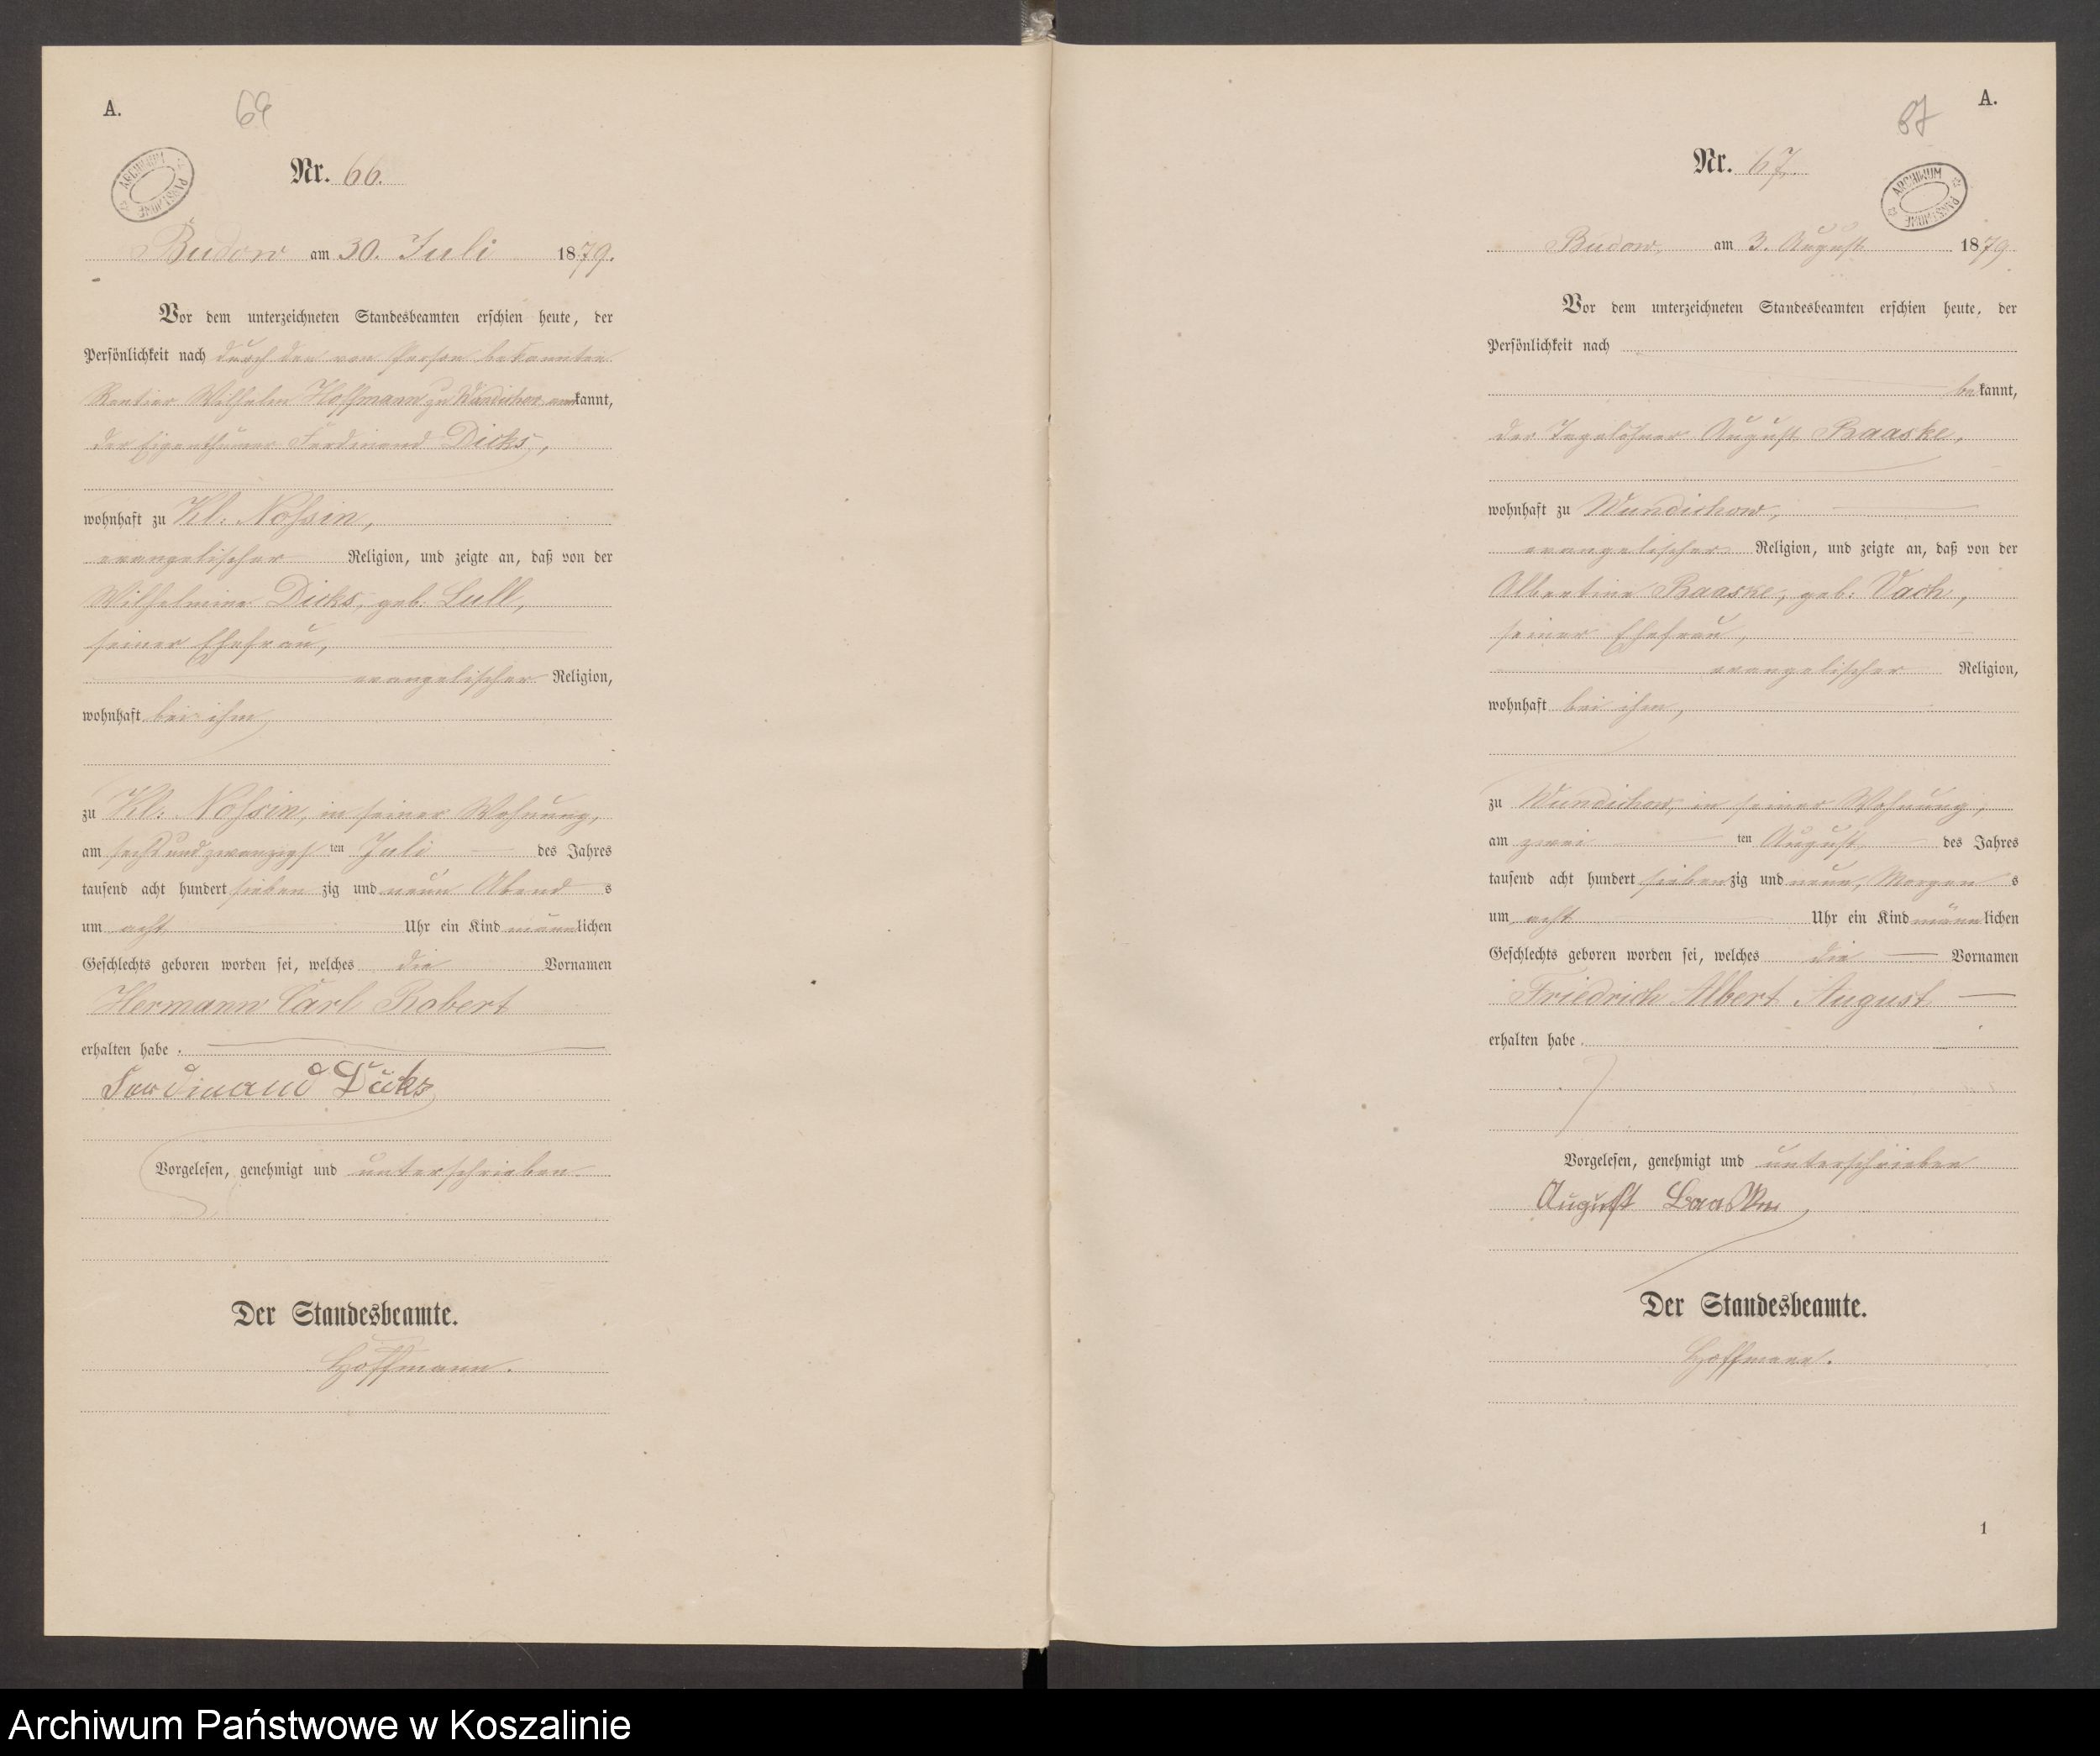 A.
Nr. 66.
ARCHIWUM PAŃSTWOWE
Budow am 30. Juli 1879.
Vor dem unterzeichneten Standesbeamten erschien heute, der
Persönlichkeit nach durch den von Person bekannten
Rentier Wilhelm Hoffmann zu Wundichow anerkannt,
der Eigenthümer Ferdinand Dicks,
wohnhaft zu Kl. Nossin,
evangelischer Religion, und zeigte an, daß von der
Wilhelmine Dicks, geb. Lull,
seiner Ehefrau,
evangelischer Religion,
wohnhaft bei ihm
zu Kl: Nossin, in seiner Wohnung,
am sechs und zwanzigsten Juli des Jahres
tausend acht hundert siebenzig und neun Abends
um acht Uhr ein Kind männlichen
Geschlechts geboren worden sei, welches die Vornamen
Hermann Carl Robert
erhalten habe.
Ferdinand Dicks
Vorgelesen, genehmigt und unterschrieben.
Der Standesbeamte.
Hoffmann.
A.
67
Nr. 67.
ARCHIWUM PAŃSTWOWE
Budow, am 3. August 1879
Vor dem unterzeichneten Standesbeamten erschien heute, der
Persönlichkeit nach
bekannt,
der Tagelöhner August Raaske,
wohnhaft zu Wundichow,
evangelischer Religion, und zeigte an, daß von der
Albertine Raaske, geb: Vach,
seiner Ehefrau,
evangelischer Religion,
wohnhaft bei ihm,
zu Wundichow, in seiner Wohnung,
am zweiten August des Jahres
tausend acht hundert siebenzig und neun, Morgens
um acht Uhr ein Kind männlichen
Geschlechts geboren worden sei, welches die Vornamen
Friedrich Albert August
erhalten habe.
Vorgelesen, genehmigt und unterschrieben
August Raaske
Der Standesbeamte.
Hoffmann.
1
Archiwum Państwowe w Koszalinie